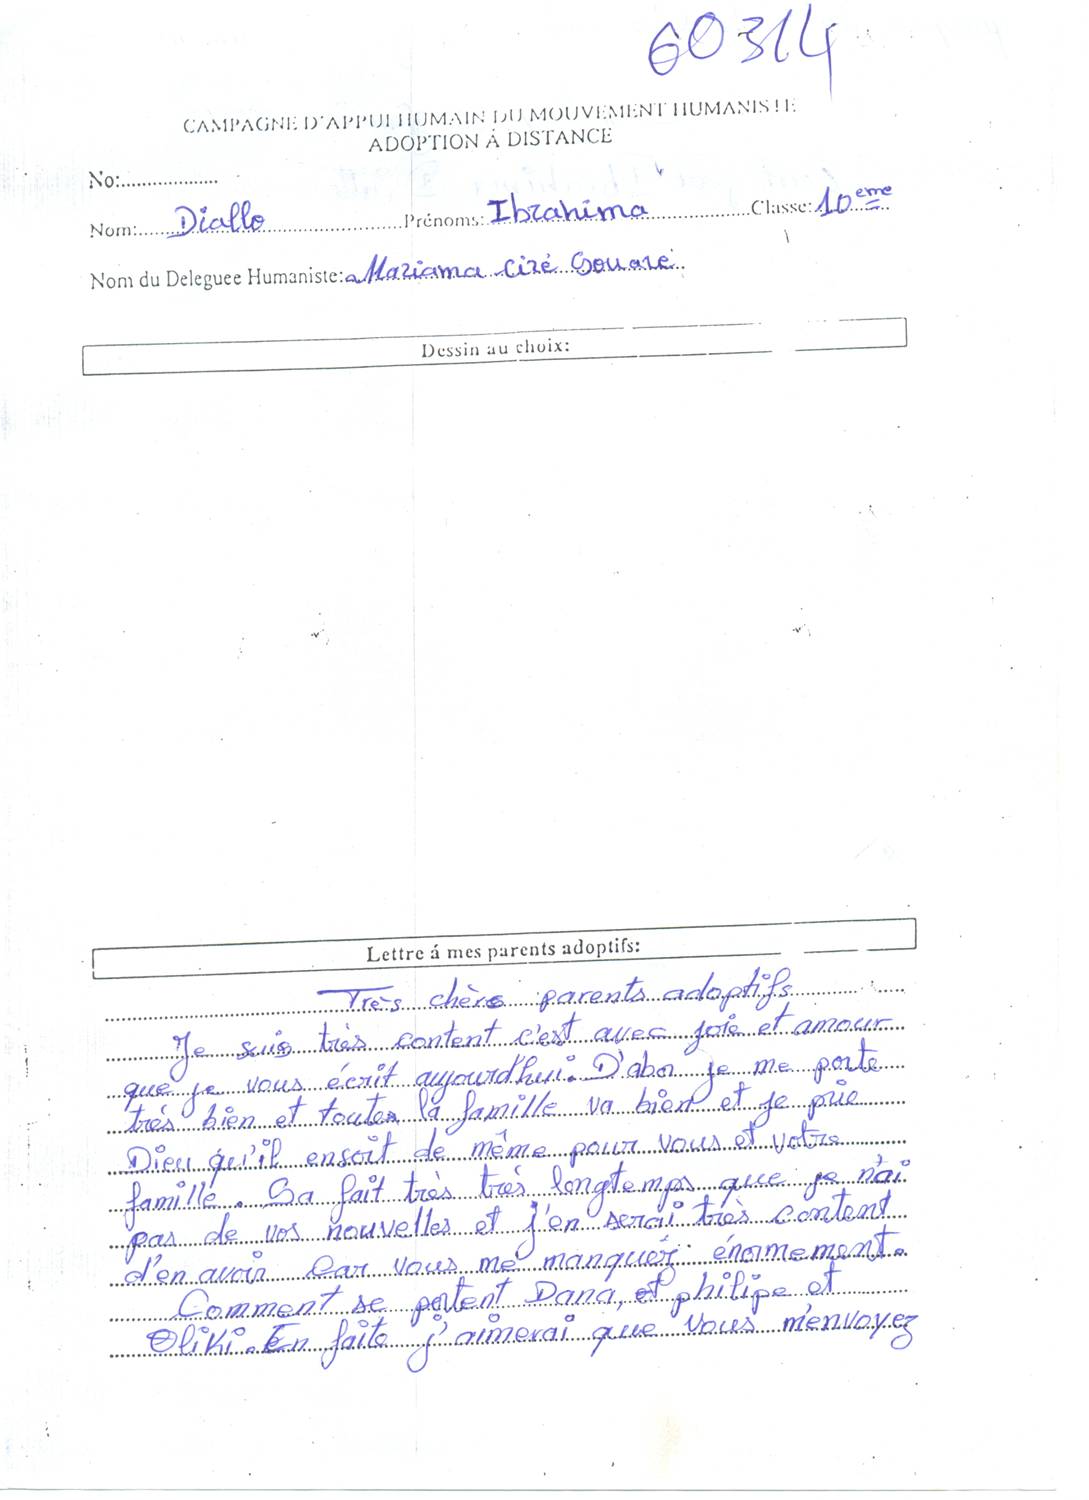 60314
CAMPAGNE D'APPUI HUMAIN DU MOUVEMENT HUMANISTE
ADOPTION Á DISTANCE
No:...................
Nom:......Diallo..............................Prénoms: Ibrahima......................Classe: 10 eme
Nom du Deleguee Humaniste: Mariama Ciré Souaré
Dessin au choix:
Lettre á mes parents adoptifs:
Très chères parents adoptifs
Je suis très content c'est avec joie et amour
que je vous écrit aujourd'hui. D'abor je me porte
très bien et toutes la famille va bien et je prie
Dieu qu'il ensoit de même pour vous et votre
famille. Sa fait très très longtemps que je n'ai
pas de vos nouvelles et j'en serai très content
d'en avoir Car vous me manquez énormement.
Comment se portent Dana, et philipe et
Oliki. En faite j'aimerai que vous m'envoyez